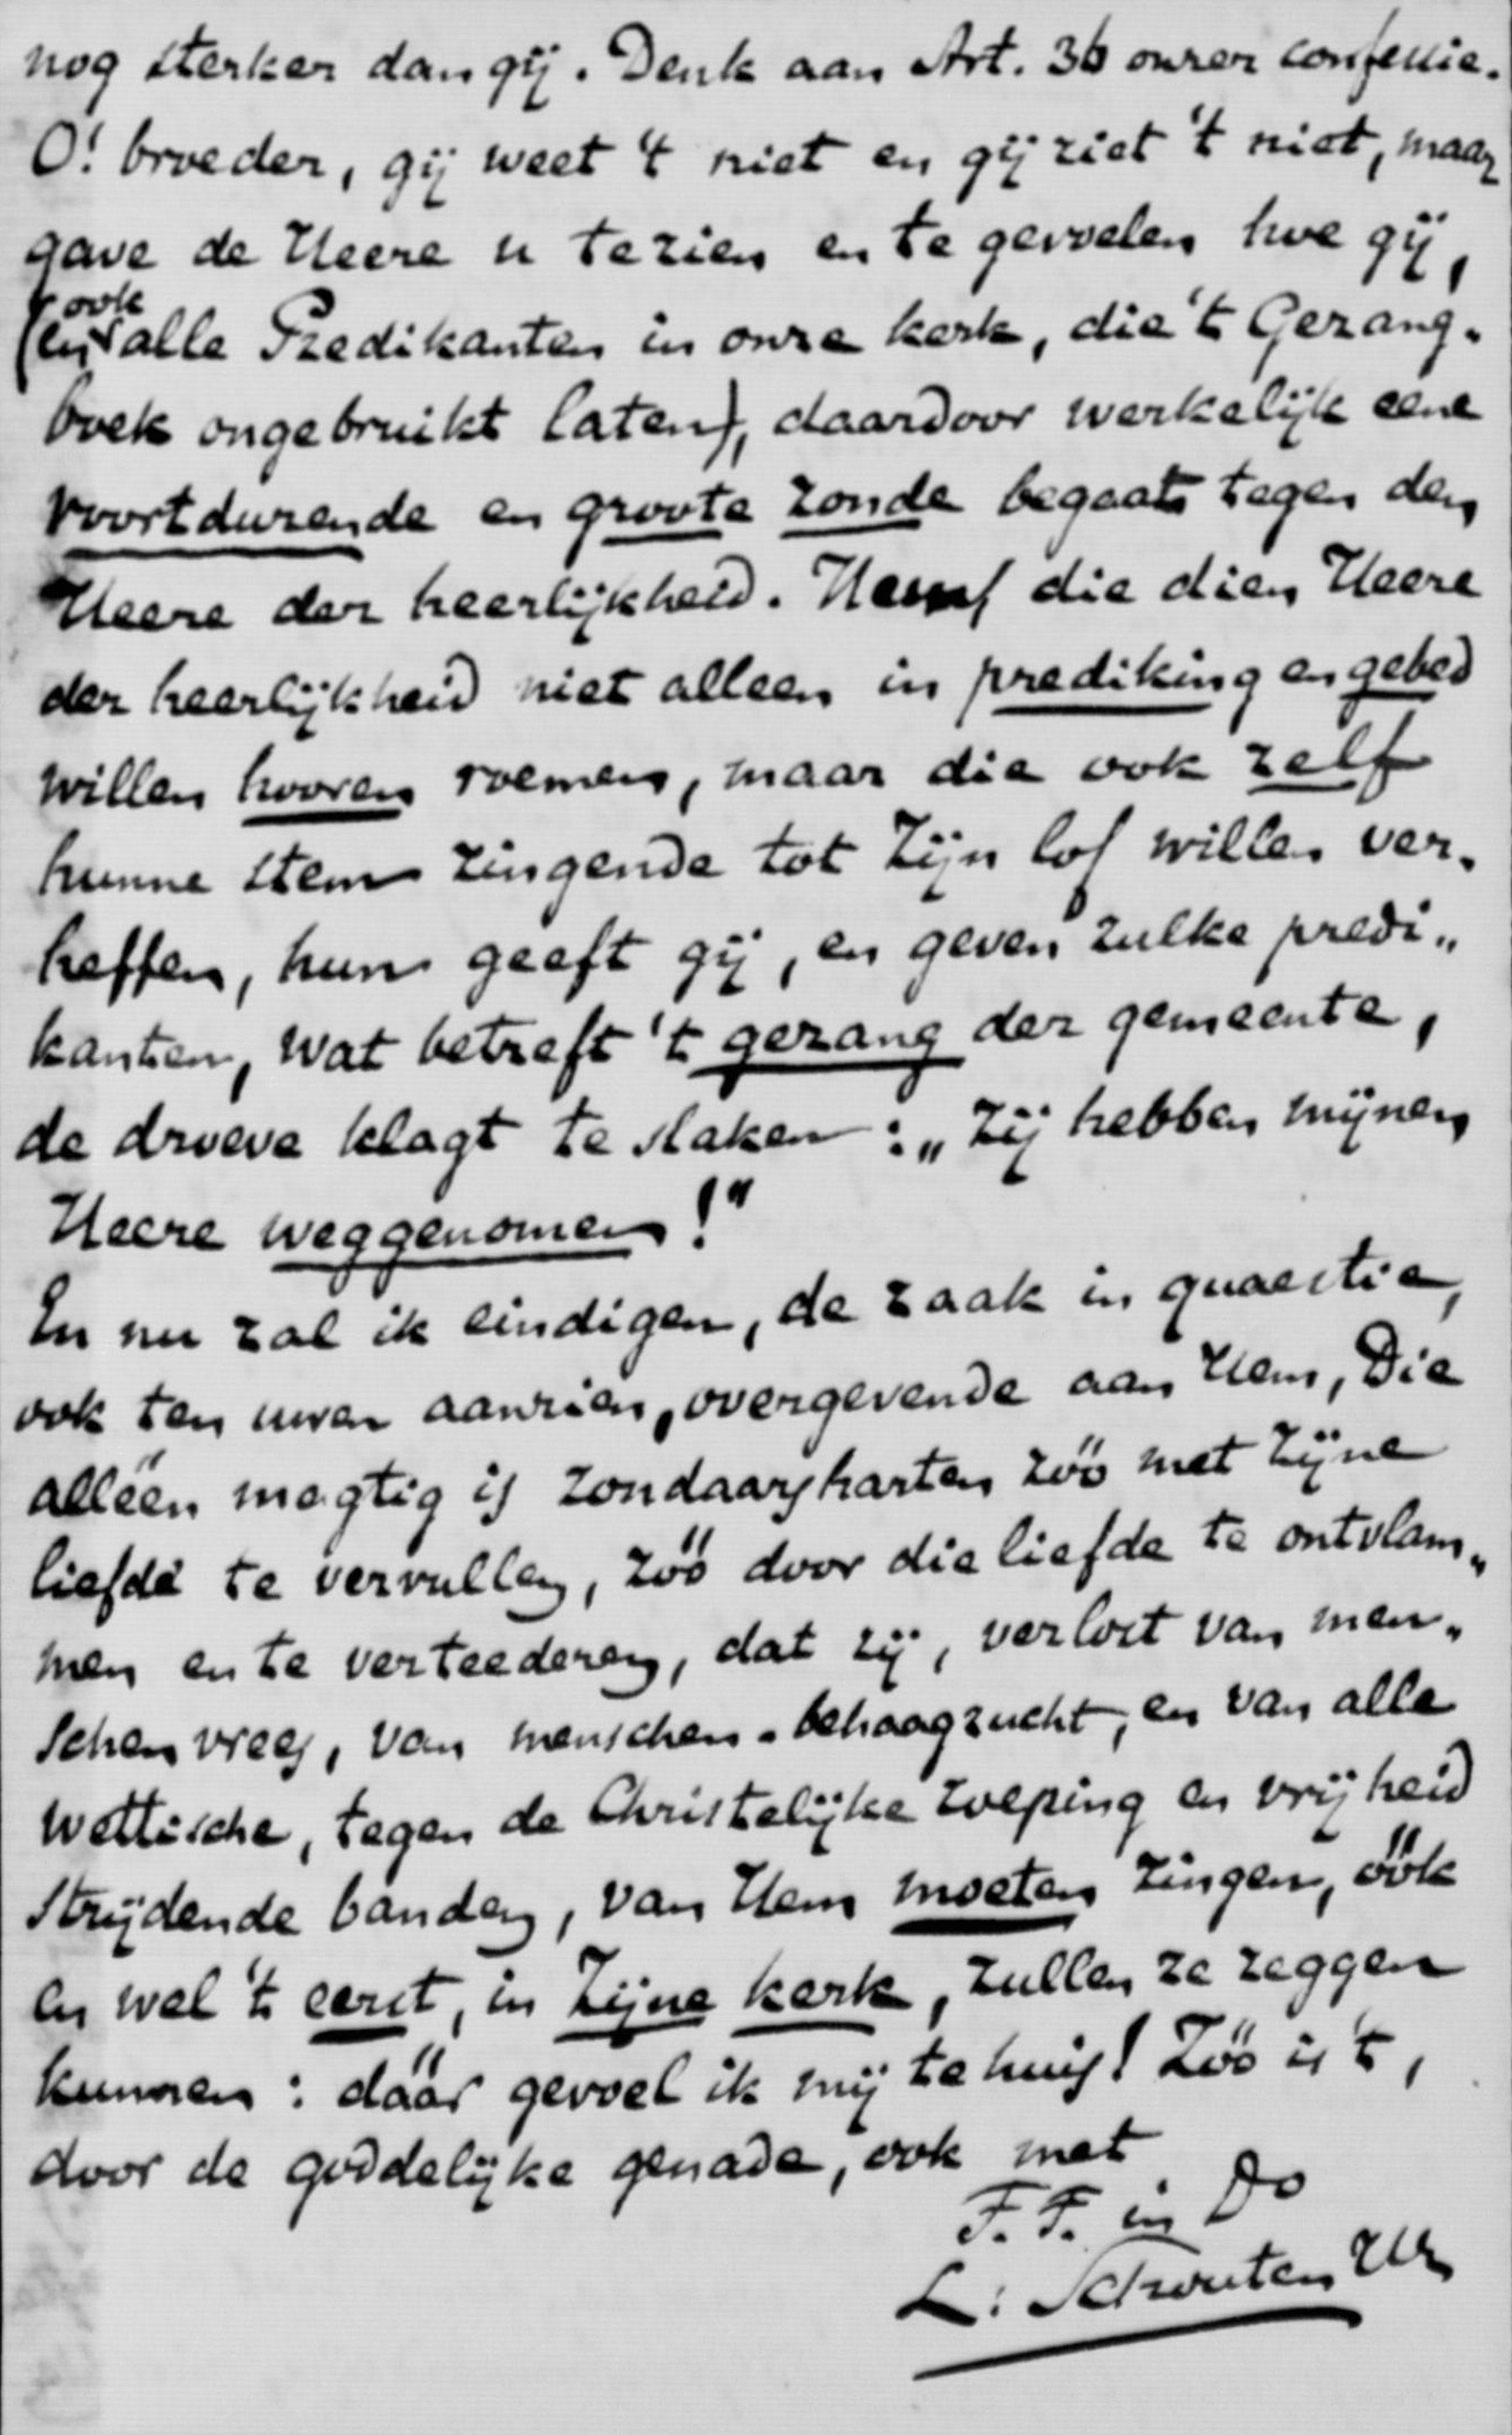 nog sterker dan gij. Denk aan Art. 36 onzer confessie.
O! broeder, gij weet 't niet en gij ziet 't niet, maar
gave de Heere u te zien en te gevoelen hoe gij,
(en ook alle Predikanten in onze kerk, die 't Gezang-
boek ongebruikt laten), daardoor werkelijk eene
voortdurende en groote zonde begaat tegen den
Heere der heerlijkheid. die dien Heere
der heerlijkheid niet alleen in prediking en gebed
willen hooren roemen, maar die ook zelf
hunne stem zingende tot Zijn lof willen ver-
heffen, hun geeft gij, en geven zulke predi-
kanten, wat betreft 't gezang der gemeente,
de droeve klagt te slaken: „Zij hebben mijnen
Heere weggenomen!"
En nu zal ik eindigen, de zaak in quaestie,
ook ten uwen aanzien, overgevende aan Hem, Die
alléén magtig is zondaarsharten zóó met Zijne
liefde te vervullen, zóó door die liefde te ontvlam-
men en te verteederen, dat zij, verlost van men-
schenvrees, van menschen-behaagzucht, en van alle
wettische, tegen de Christelijke roeping en vrijheid
strijdende banden, van Hem moeten zingen, óók
en wel 't eerst, in Zijne kerk, zullen ze zeggen
kunnen: dáár gevoel ik mij te huis! Zóó is 't,
door de goddelijke genade, ook met
T. T. in Do
L: Schouten Hz